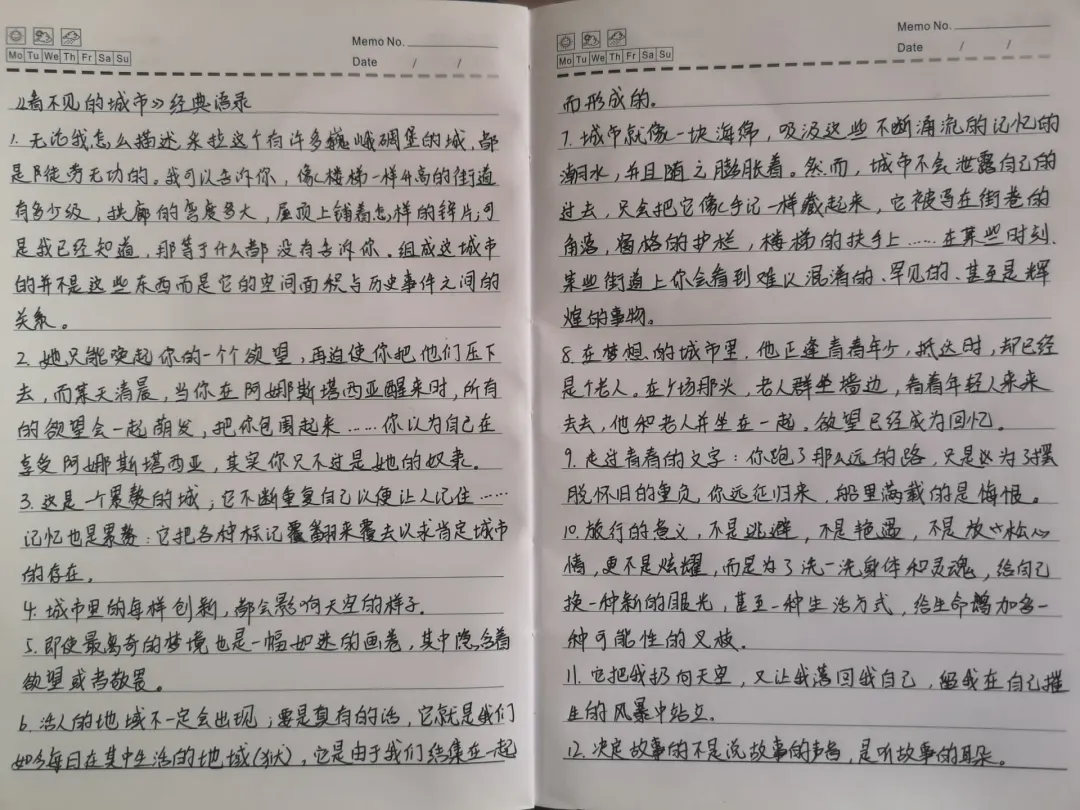 Memo No.
Mo Tu We Th Fr Sa Su
Date / /
《看不见的城市》经典语录
1. 无论我怎么描述,朱拉这个有许多巍峨碉堡的城,都
是徒劳无功的。我可以告诉你,像楼梯一样升高的街道
有多少级,拱廊的弯度多大,屋顶上铺着怎样的锌片;可
是我已经知道,那等于什么都没有告诉你。组成这城市
的并不是这些东西而是它的空间面积与历史事件之间的
关系。
2. 她只能唤起你的一个个欲望,再迫使你把他们压下
去,而某天清晨,当你在阿娜斯塔西亚醒来时,所有
的欲望会一起萌发,把你包围起来……你以为自己在
享受阿娜斯塔西亚,其实你只不过是她的奴隶。
3. 这是一个累赘的城;它不断重复自己以便让人记住……
记忆也是累赘:它把各种标记覆翻来覆去以求肯定城市
的存在。
4. 城市里的每样创新,都会影响天空的样子。
5. 即使最离奇的梦境也是一幅如迷的画卷,其中隐含着
欲望或者敬畏。
6. 活人的地域不一定会出现;要是真有的话,它就是我们
如今每日在其中生活的地域(狱),它是由于我们结集在一起
Memo No.
Mo Tu We Th Fr Sa Su
Date / /
而形成的。
7. 城市就像一块海绵,吸汲这些不断涌流的记忆的
潮水,并且随之膨胀着。然而,城市不会泄露自己的
过去,只会把它像手记一样藏起来,它被写在街巷的
角落,窗格的护栏,楼梯的扶手上……在某些时刻,
某些街道上你会看到难以混淆的、罕见的、甚至是辉
煌的事物。
8. 在梦想的城市里,他正逢青春年少,抵达时,却已经
是个老人。在广场那头,老人群坐墙边,看着年轻人来来
去去,他和老人并坐在一起。欲望已经成为回忆。
9. 走过青春的文字:你跑了那么远的路,只是以为了摆
脱怀旧的重负,你远征归来,船里满载的是悔恨。
10. 旅行的意义,不是逃避,不是艳遇,不是放心松心
情,更不是炫耀,而是为了洗一洗身体和灵魂,给自己
换一种新的眼光,甚至一种生活方式,给生命增加多一
种可能性的叉枝。
11. 它把我扔向天空,又让我落回我自己,留我在自己催
生的风暴中站立。
12. 决定故事的不是说故事的声音,是听故事的耳朵。